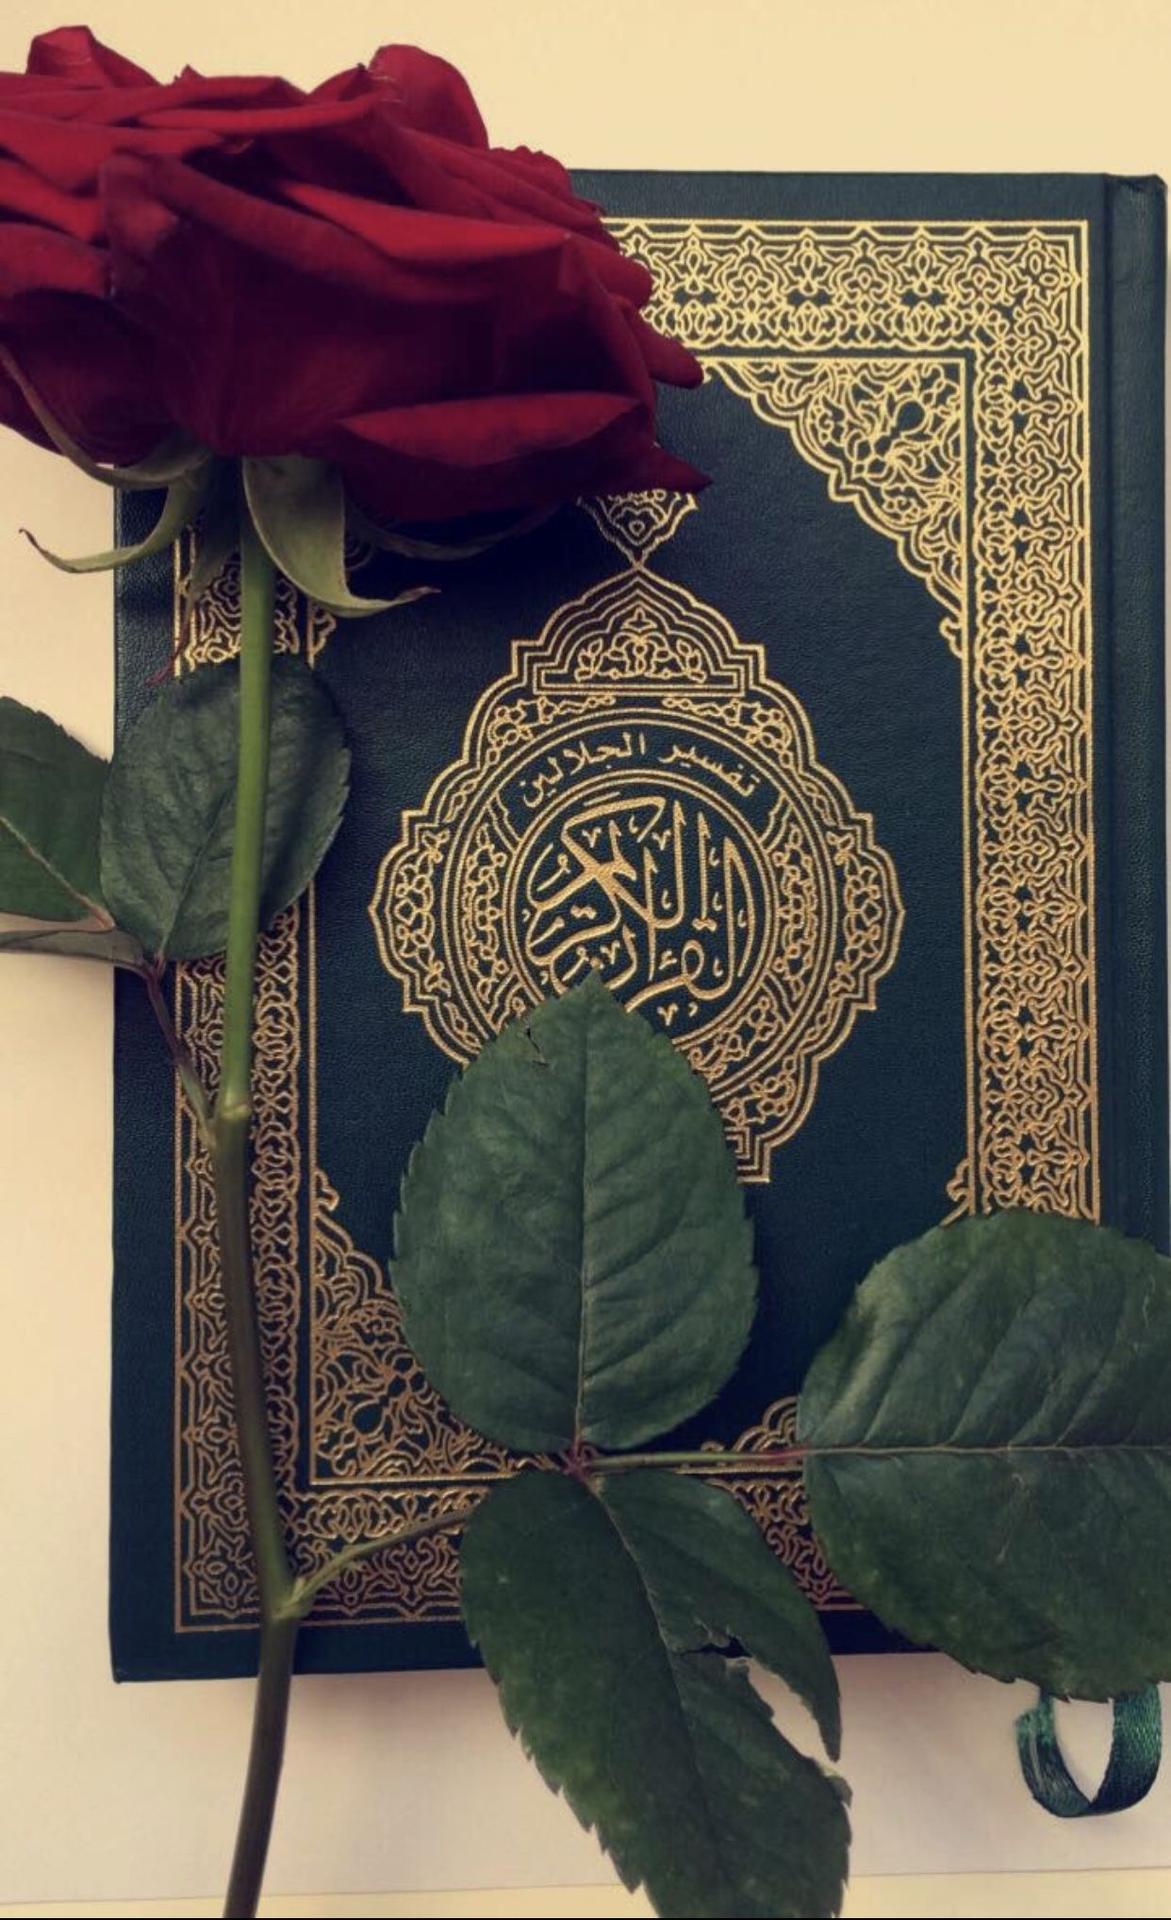 تفسير الجلالين
القرآن الكريم